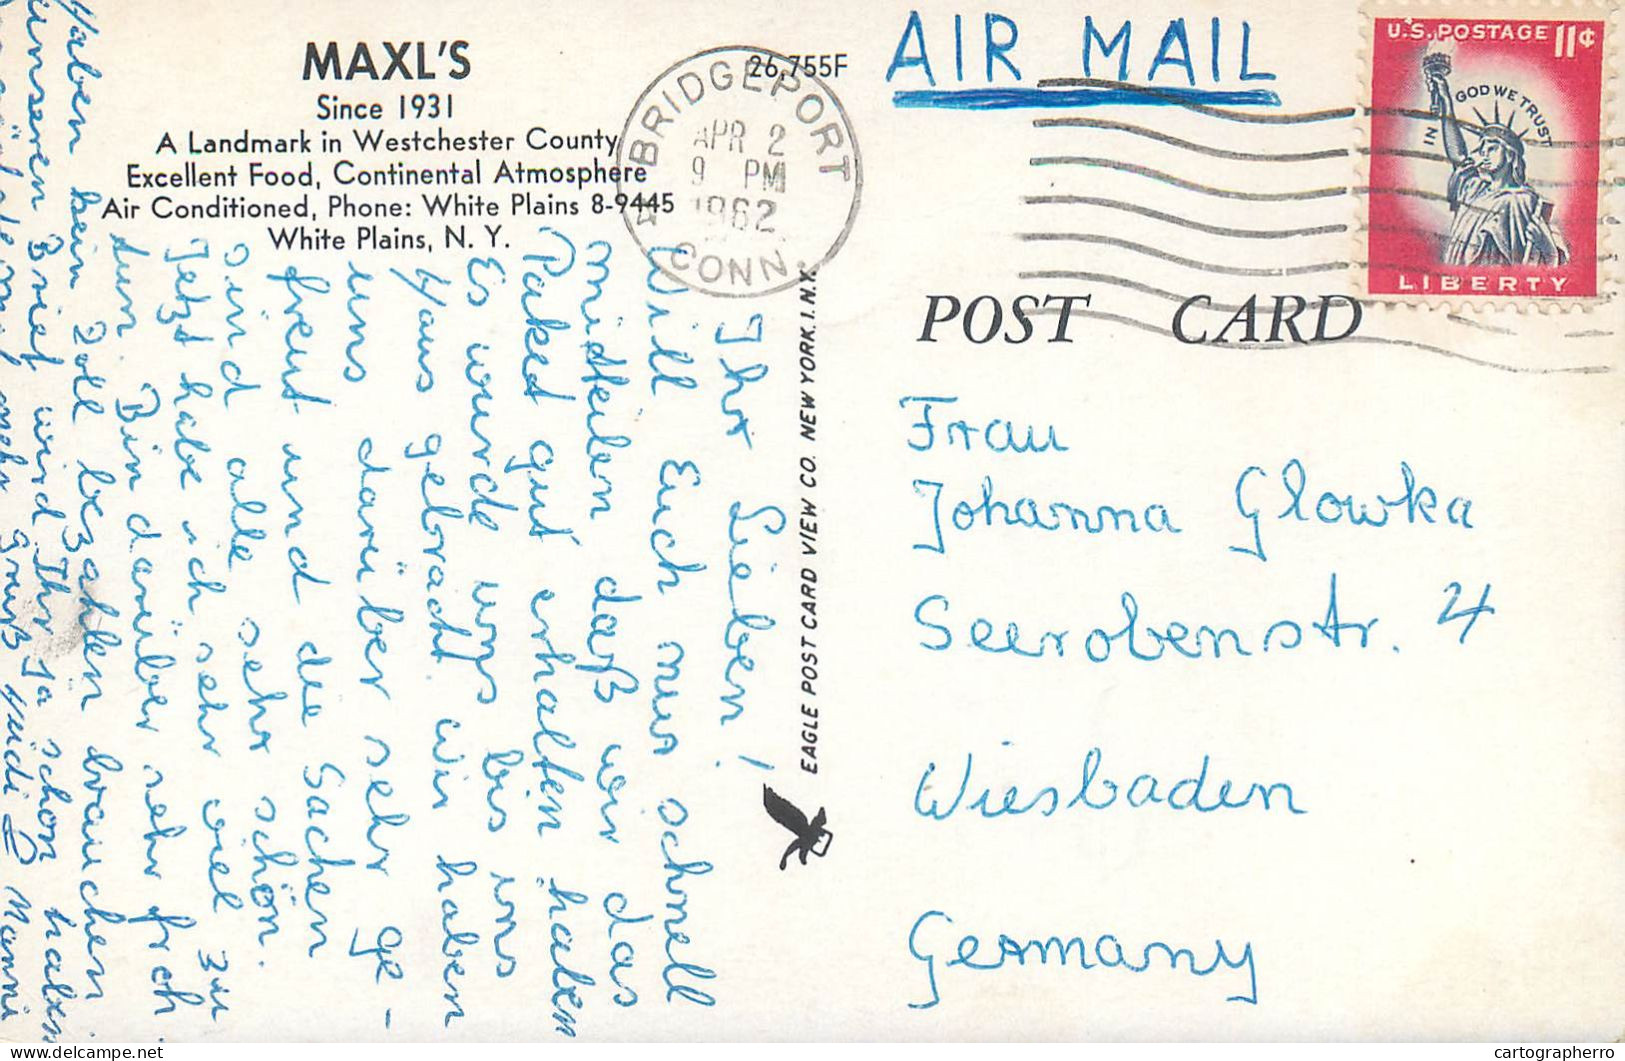 MAXL'S
Since 1931
A Landmark in Westchester County
Excellent Food, Continental Atmosphere
Air Conditioned, Phone: White Plains 8-9445
White Plains, N. Y.
26,755F
BRIDGEPORT
APR 2
9 PM
1962
CONN.
AIR MAIL
U.S. POSTAGE 11¢
IN GOD WE TRUST
LIBERTY
POST CARD
EAGLE POST CARD VIEW CO. NEW YORK.1.N.Y.
Ihr Lieben!
Will Euch nur schnell
mitteilen daß wir das
Paket gut erhalten haben
Es wurde uns bis ins
Haus gebracht. wir haben
uns darüber sehr ge-
freut und die Sachen
sind alle sehr schön.
Jetzt habe ich sehr viel zu
tun. Bin darüber sehr froh
Haben kein Zoll bezahlen brauchen
unseren Brief wird Ihr ja schon haben
mal mehr Gruß Heidi u Nanni
Frau
Johanna Glowka
Seerobenstr. 4
Wiesbaden
Germany
www.delcampe.net
cartographerro